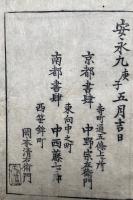 安永九庚子五月吉日
寺町通五條上町
京都書肆 中野宗左衛門
東向中之町
南都書肆 中西藤
西笹鉾町
岡本清右衛門